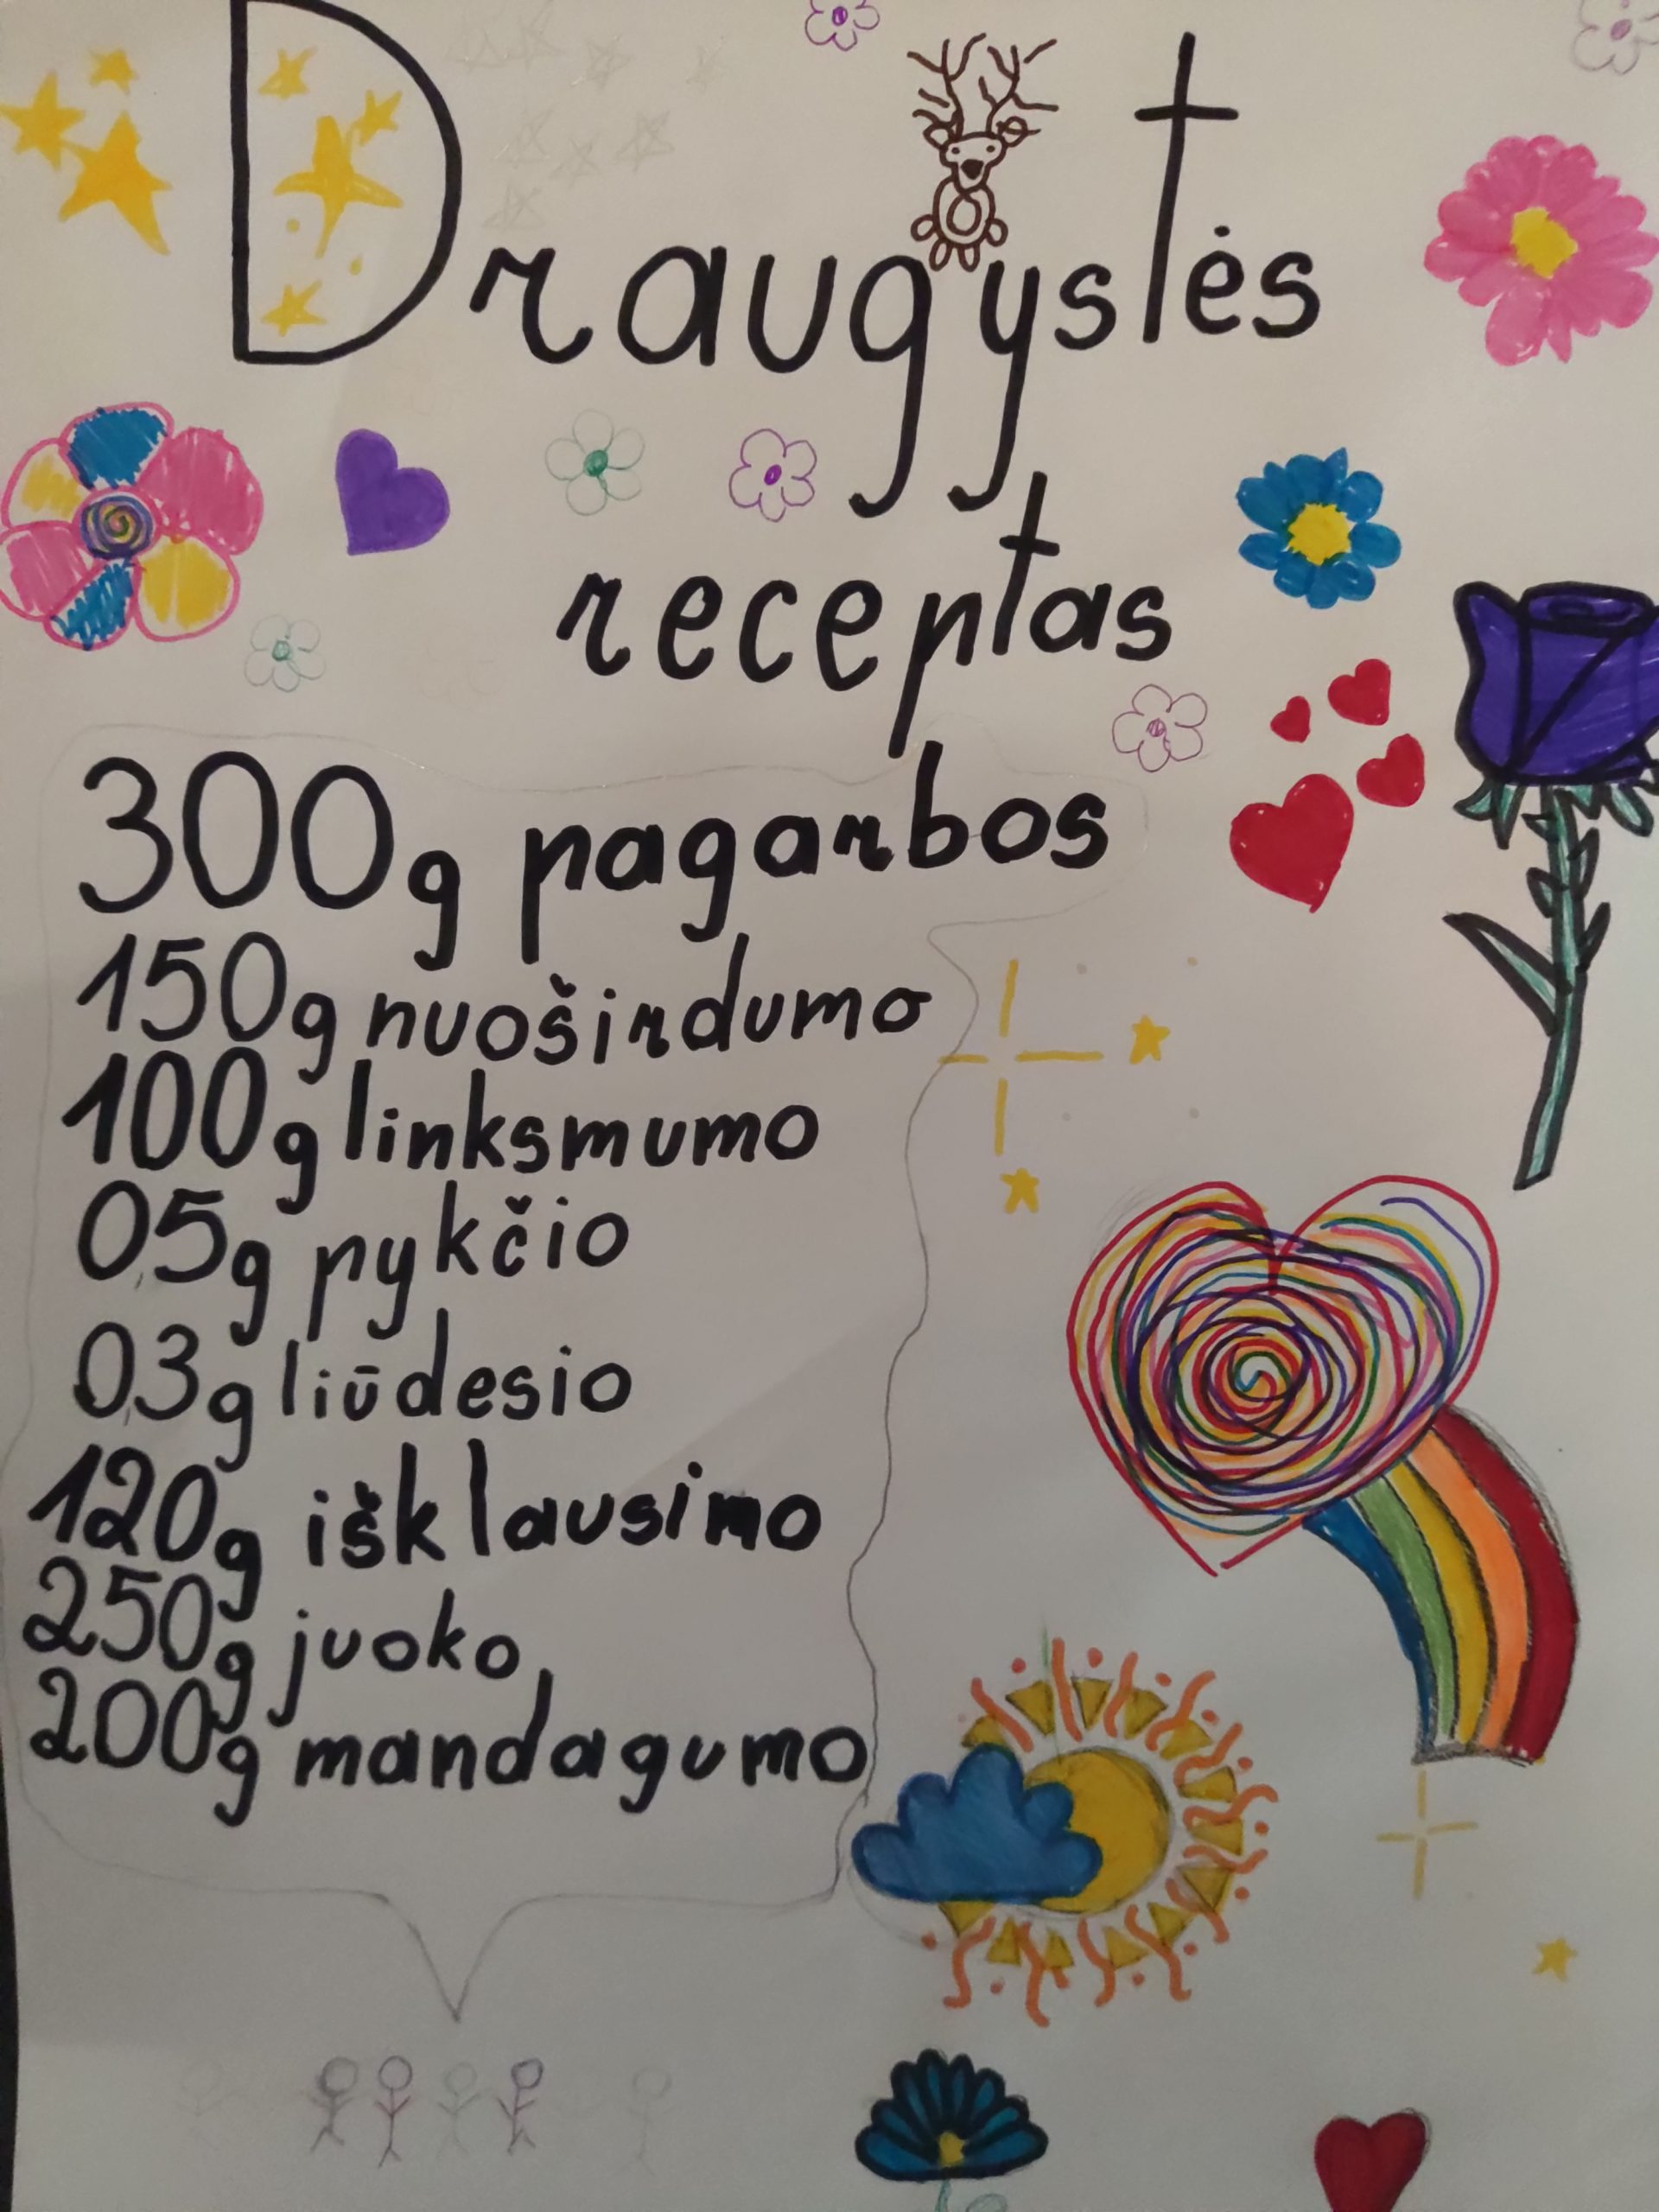 Draugystės
receptas
300g pagarbos
150g nuoširdumo
100g linksmumo
0,5g pykčio
0,3g liūdesio
120g išklausimo
250g juoko,
200g mandagumo